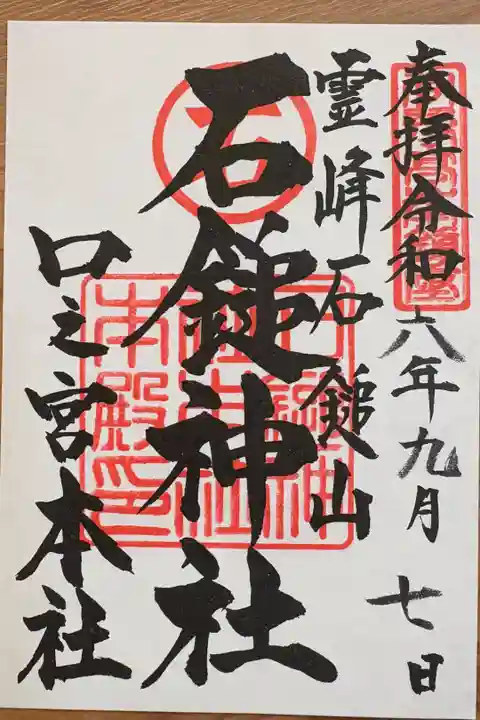 奉拝令和六年九月七日
霊峰石鎚山
石鎚神社
口之宮本社